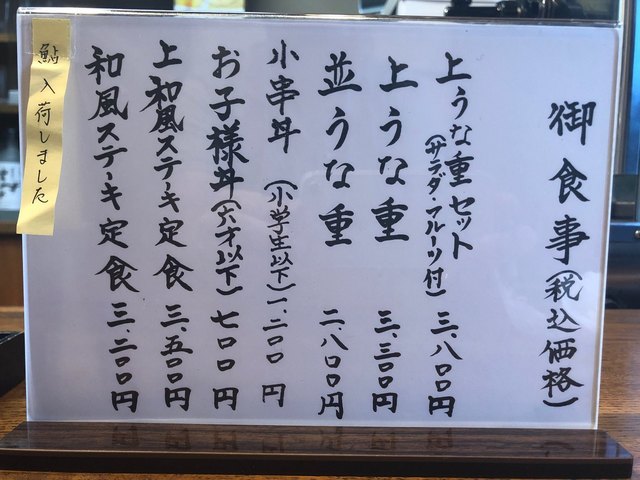 御食事(税込価格)
上うな重セット
(サラダ・フルーツ付)
三、八〇〇円
上うな重 三、三〇〇円
並うな重 二、八〇〇円
小串丼(小学生以下)一、二〇〇円
お子様丼(六才以下)七〇〇円
上和風ステーキ定食 三、五〇〇円
和風ステーキ定食 三、二〇〇円
鮎入荷しました